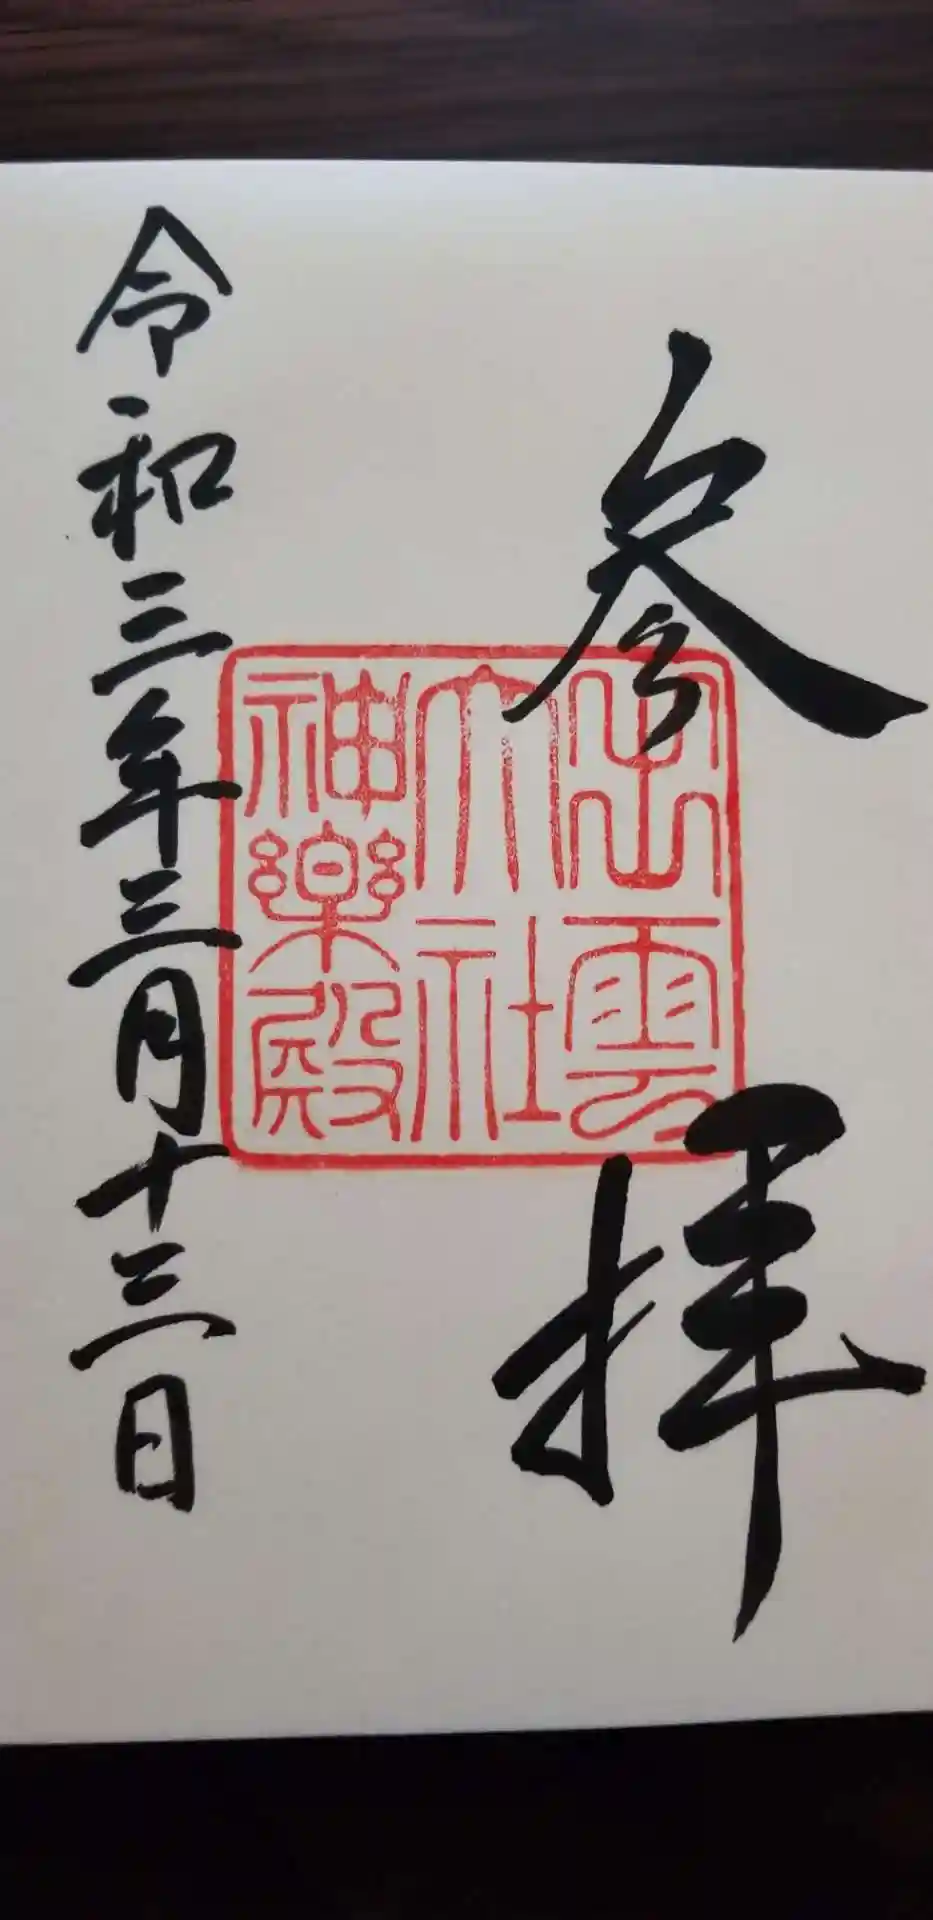 参拝
出雲
大社
神楽殿
令和三年三月十三日